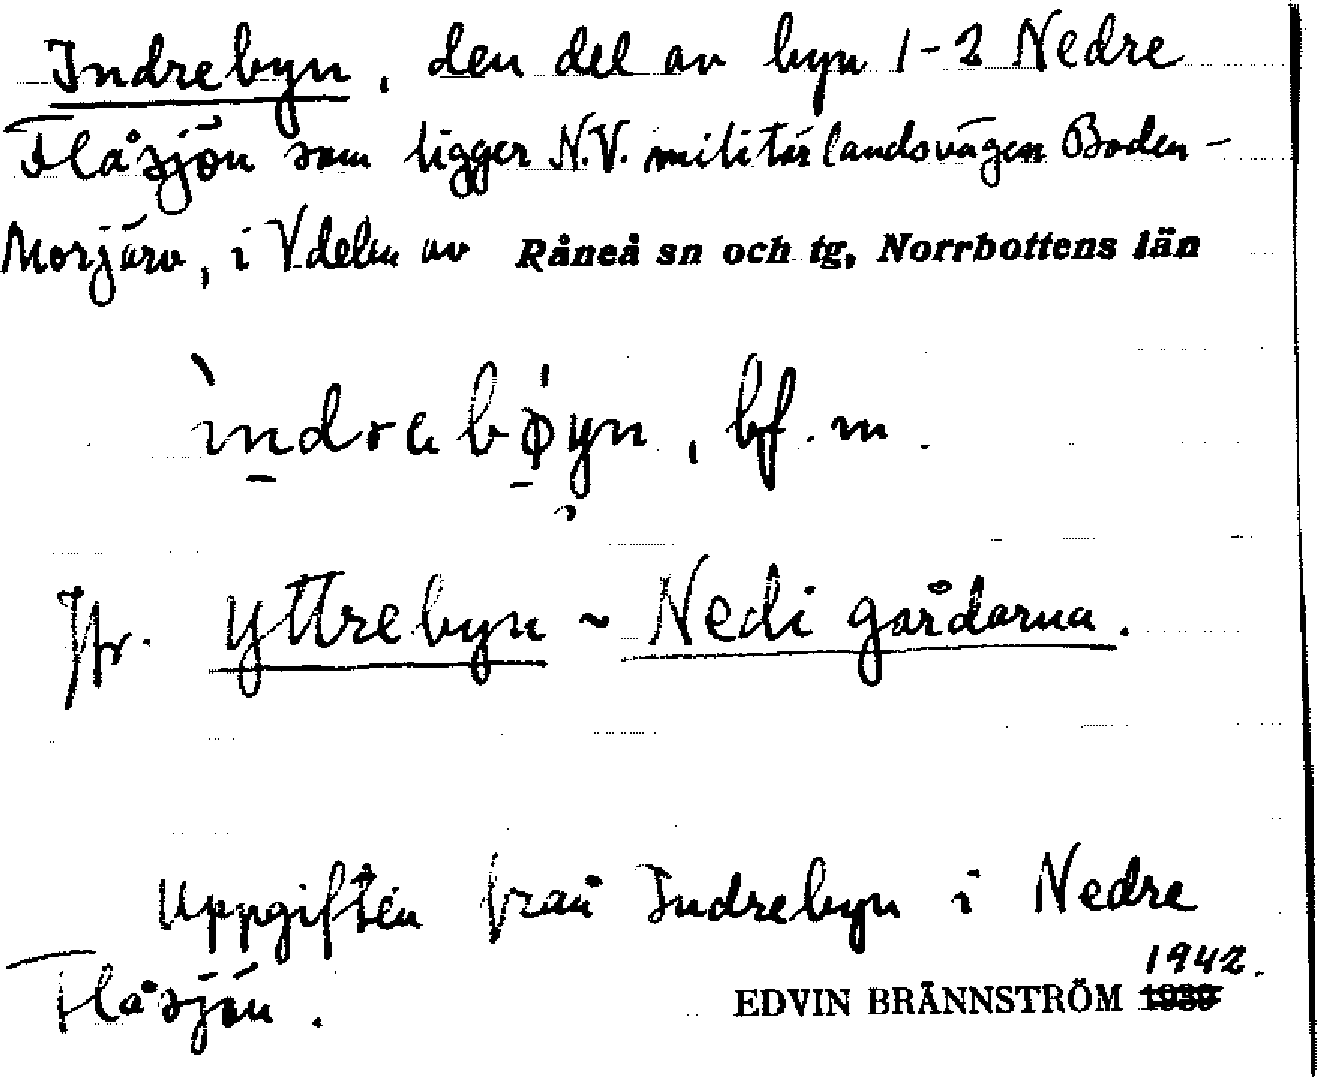 Indrebyn, den del av byn 1-2 Nedre
Flåsjön som ligger N.V. militärlandsvägen Boden-
Morjärv, i V delen av Råneå sn och tg, Norrbottens län
ìndrabø̱yn, bf. m.
Jfr. Yttrebyn ~ Nedi gårdarna.
Uppgiften från Indrebyn i Nedre
Flåsjön.
1942.
EDVIN BRÄNNSTRÖM 1939